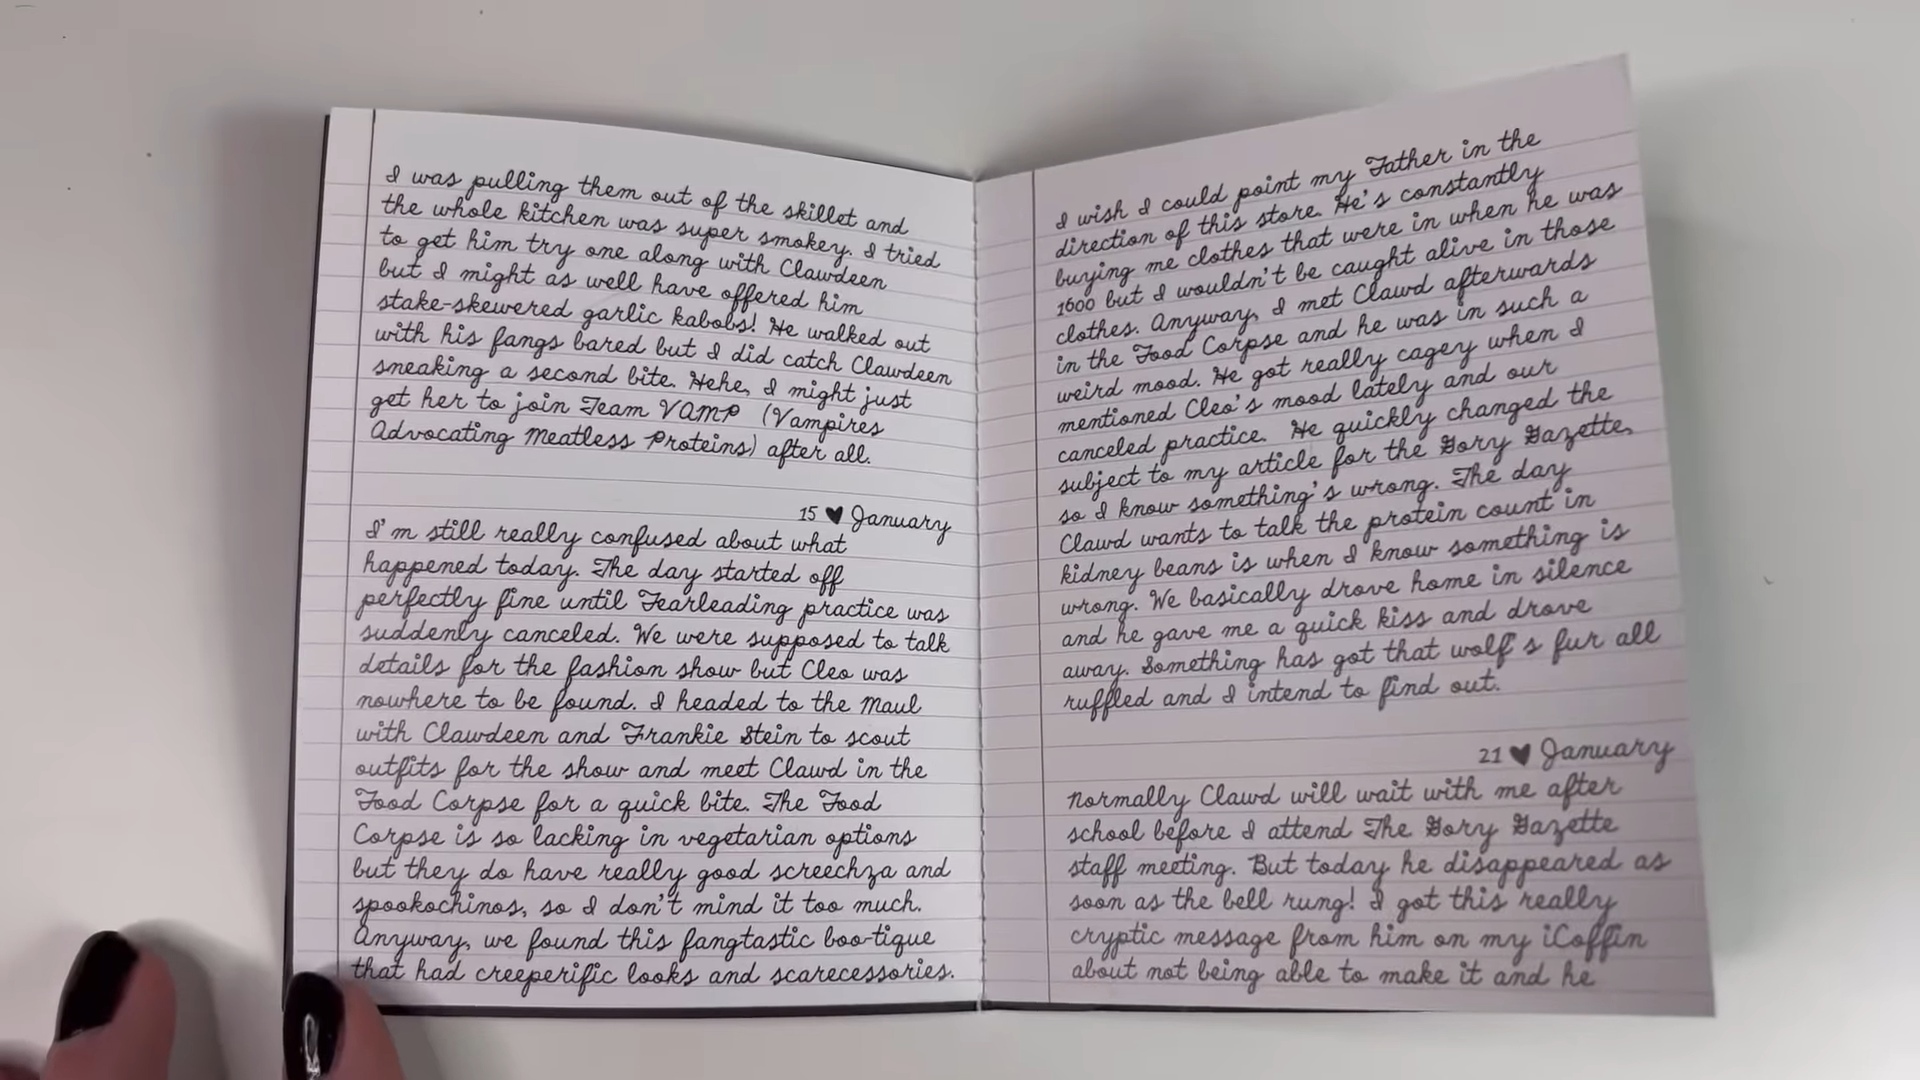 I was pulling them out of the skillet and
the whole kitchen was super smokey. I tried
to get him try one along with Clawdeen
but I might as well have offered him
stake-skewered garlic kabobs! He walked out
with his fangs bared but I did catch Clawdeen
sneaking a second bite. Hehe, I might just
get her to join Team VAMP (Vampires
Advocating Meatless Proteins) after all.
15 ♥ January
I'm still really confused about what
happened today. The day started off
perfectly fine until Fearleading practice was
suddenly canceled. We were supposed to talk
details for the fashion show but Cleo was
nowhere to be found. I headed to the Maul
with Clawdeen and Frankie Stein to scout
outfits for the show and meet Clawd in the
Food Corpse for a quick bite. The Food
Corpse is so lacking in vegetarian options
but they do have really good screechza and
spookochinos, so I don't mind it too much.
Anyway, we found this fangtastic boo-tique
that had creeperific looks and scarecessories.
I wish I could point my Father in the
direction of this store. He's constantly
buying me clothes that were in when he was
1600 but I wouldn't be caught alive in those
clothes. Anyway, I met Clawd afterwards
in the Food Corpse and he was in such a
weird mood. He got really cagey when I
mentioned Cleo's mood lately and our
canceled practice. He quickly changed the
subject to my article for the Gory Gazette,
so I know something's wrong. The day
Clawd wants to talk the protein count in
kidney beans is when I know something is
wrong. We basically drove home in silence
and he gave me a quick kiss and drove
away. Something has got that wolf's fur all
ruffled and I intend to find out.
21 ♥ January
Normally Clawd will wait with me after
school before I attend The Gory Gazette
staff meeting. But today he disappeared as
soon as the bell rung! I got this really
cryptic message from him on my iCoffin
about not being able to make it and he